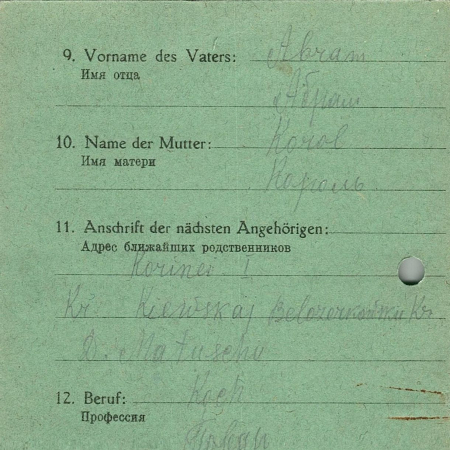 9. Vorname des Vaters: Abram
Имя отца
Абрам
10. Name der Mutter: Korol
Имя матери
Король
11. Anschrift der nächsten Angehörigen:
Адрес ближайших родственников
I
Kr. Kiewskaj
D. Matuschi
12. Beruf: Koch
Профессия
Повар